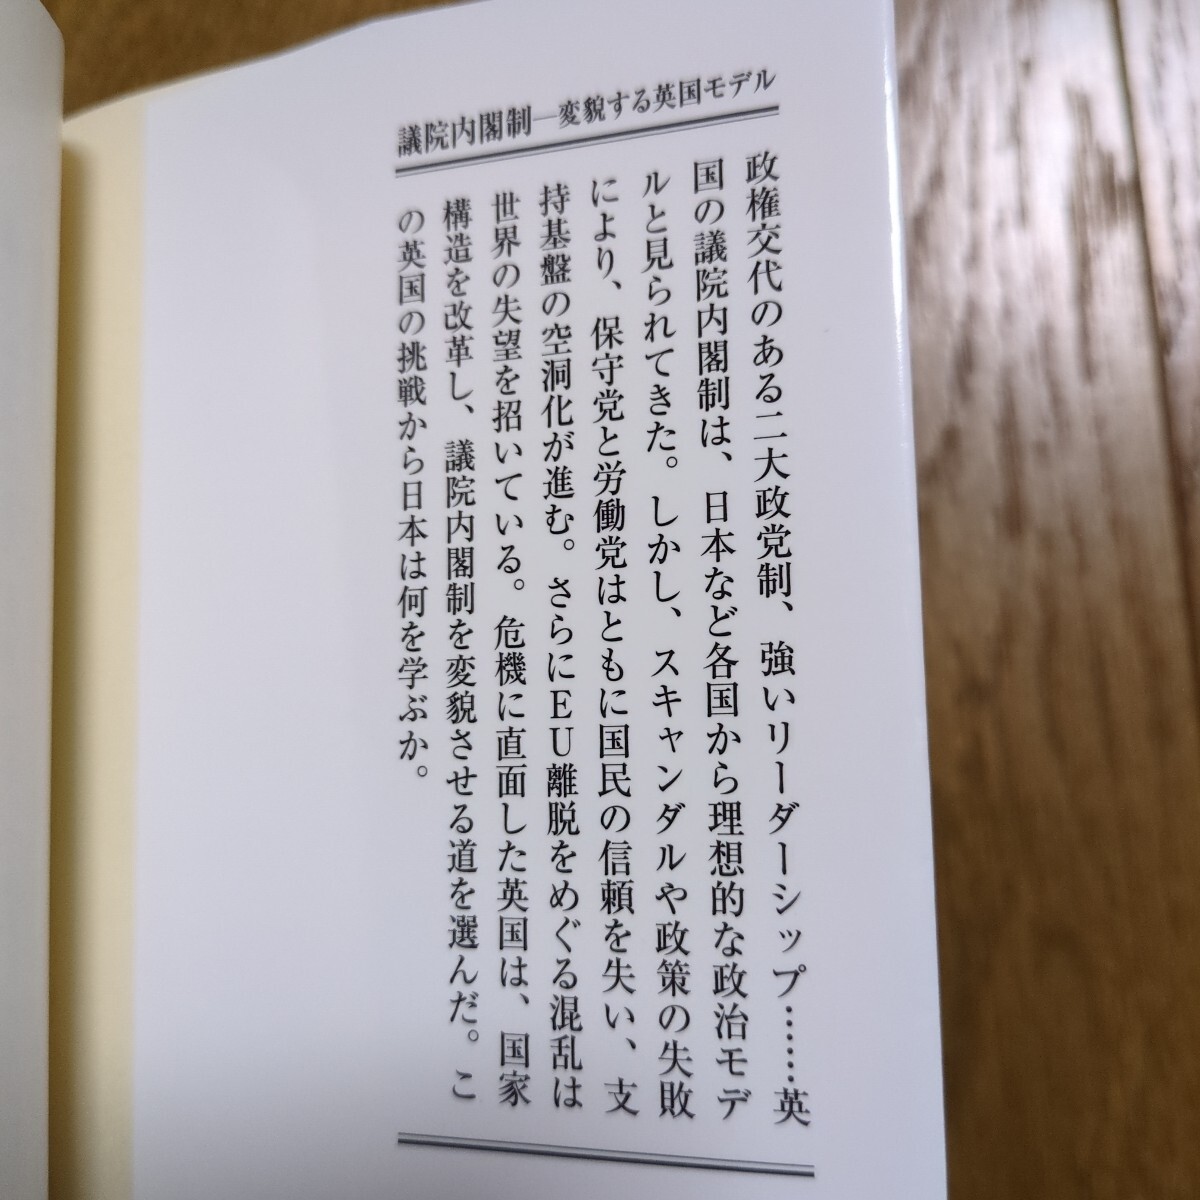 議院内閣制―変貌する英国モデル
政権交代のある二大政党制、強いリーダーシップ……英
国の議院内閣制は、日本など各国から理想的な政治モデ
ルと見られてきた。しかし、スキャンダルや政策の失敗
により、保守党と労働党はともに国民の信頼を失い、支
持基盤の空洞化が進む。さらにEU離脱をめぐる混乱は
世界の失望を招いている。危機に直面した英国は、国家
構造を改革し、議院内閣制を変貌させる道を選んだ。こ
の英国の挑戦から日本は何を学ぶか。